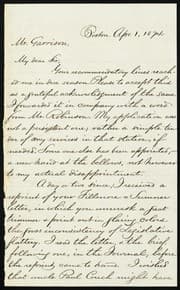 Boston Apr. 1, 1874.
Mr. Garrison,
My dear Sir,
Your recommendatory lines reach
ed me in due season. Please to accept this
as a grateful acknowledgment of the same.
I forwarded it in company with a word
from Mr. Robinson. My application was
not a persistent one; rather a simple ten
der of my services in that station, if
needed. Some one else has been appointed
a new hand at the bellows, not however
to my actual disappointment.
A day or two since, I received a
reprint of your Fillmore & Sumner
letter, in which you
the
inconsistency of Legislative
flattery. I read the letter, & the brief
following one, in the Journal, before
the reprint came to hand. I wished
that uncle Paul might have